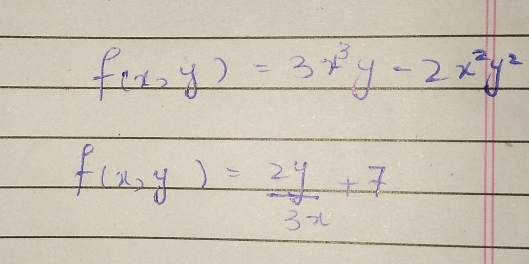 f(x,y) = 3x³y - 2x²y²
f(x,y) = 2y/3x + 7